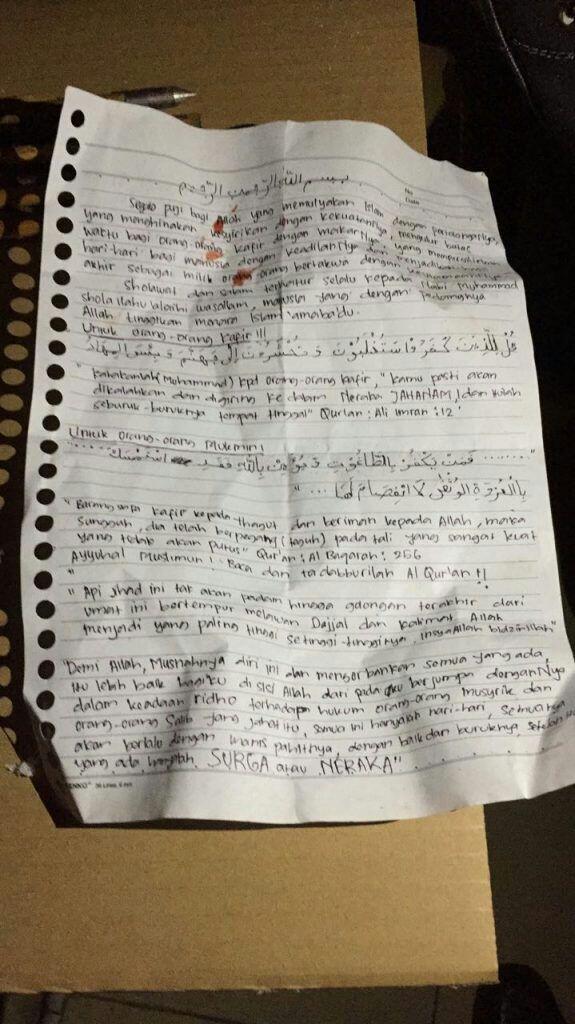 بسم الله الرحمن الرحيم
No
Date
Segala puji bagi Allah yang memulyakan Islam dengan pertolonganNya,
yang menghinakan kesyirikan dengan kekuatanNya, mengulur batas
waktu bagi orang-orang kafir dengan makarNya, yang mempergilirkan
hari-hari bagi manusia dengan keadilanNya dan menjadikan
akhir sebagai milik orang-orang bertakwa dengan
Sholawat dan salam tercurah selalu kepada Nabi Muhammad
sholallahu alaihi wasallam, manusia yang dengan pedangnya
Allah tinggikan menara Islam 'amaba'du.
Untuk orang-orang kafir !!!
قل للذين كفروا ستغلبون وتحشرون إلى جهنم وبئس المهاد
"katakanlah (Mohammad) kpd orang-orang kafir, "kamu pasti akan
dikalahkan dan digiring ke dalam Neraka JAHANAM, dan itulah
seburuk-buruknya tempat tinggal" Qur'an : Ali Imran : 12'
Untuk orang-orang Mukmin !
"....... فمن يكفر بالطاغوت ويؤمن بالله فقد استمسك
بالعروة الوثقى لا انفصام لها ... "
"Barangsiapa kafir kepada thagut dan beriman kepada Allah, maka
sungguh, dia telah berpegang (teguh) pada tali yang sangat kuat
yang tidak akan putus" Qur'an : Al Baqarah : 256
Ayyuhal Muslimun ! Baca dan tadabburilah Al Qur'an !!
"
"Api jihad ini tak akan padam hingga golongan terakhir dari
umat ini bertempur melawan Dajjal dan kalimat Allah
menjadi yang paling tinggi setinggi-tingginya, insyaAllah bidznillah"
"Demi Allah, Musnahnya diri ini dan mengorbankan semua yang ada,
itu lebih baik bagiku di sisi Allah dari pada aku berjumpa denganNya
dalam keadaan ridho terhadap hukum orang-orang musyrik dan
orang-orang Salib yang jahat itu, semua ini hanyalah hari-hari, semuanya
akan berlalu dengan manis pahitnya, dengan baik dan buruknya, setelah itu
yang ada hanyalah SURGA atau NERAKA"